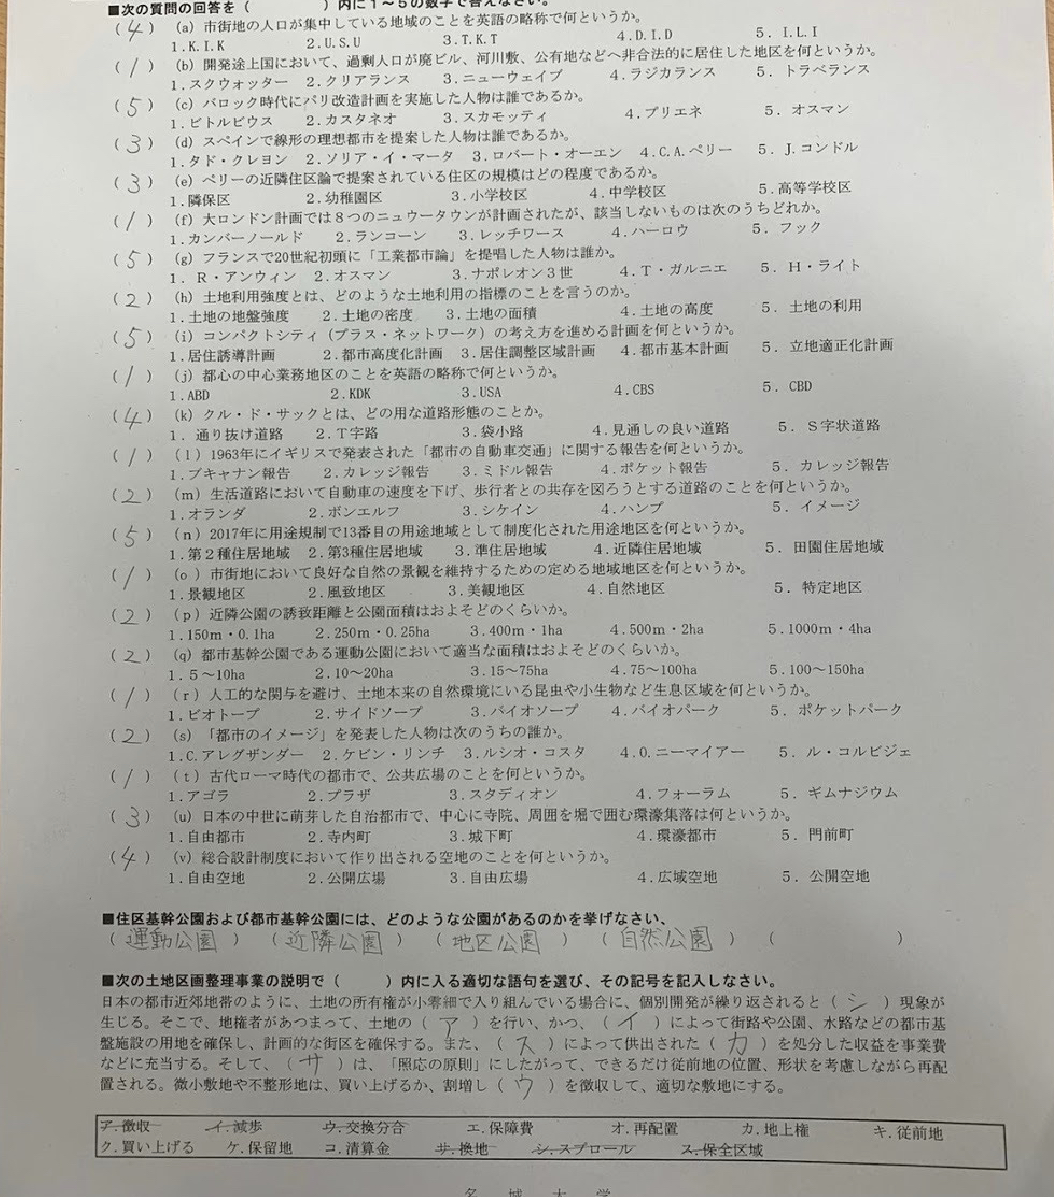 ■次の質問の回答を（　　　）内に１～５の数字で答えなさい。
（4）（a）市街地の人口が集中している地域のことを英語の略称で何というか。
1.K.I.K　2.U.S.U　3.T.K.T　4.D.I.D　5. I.L.I
（1）（b）開発途上国において、過剰人口が廃ビル、河川敷、公有地などへ非合法的に居住した地区を何というか。
1.スクウォッター　2.クリアランス　3.ニューウェイブ　4.ラジカランス　5. トラベランス
（5）（c）バロック時代にパリ改造計画を実施した人物は誰であるか。
1.ビトルビウス　2.カスタネオ　3.スカモッティ　4.プリエネ　5. オスマン
（3）（d）スペインで線形の理想都市を提案した人物は誰であるか。
1.タド・クレヨン　2.ソリア・イ・マータ　3.ロバート・オーエン　4.C.A.ペリー　5. J.コンドル
（3）（e）ペリーの近隣住区論で提案されている住区の規模はどの程度であるか。
1.隣保区　2.幼稚園区　3.小学校区　4.中学校区　5.高等学校区
（1）（f）大ロンドン計画では８つのニュウータウンが計画されたが、該当しないものは次のうちどれか。
1.カンバーノールド　2.ランコーン　3.レッチワース　4.ハーロウ　5. フック
（5）（g）フランスで20世紀初頭に「工業都市論」を提唱した人物は誰か。
1. R・アンウィン　2.オスマン　3.ナポレオン３世　4.T・ガルニエ　5. H・ライト
（2）（h）土地利用強度とは、どのような土地利用の指標のことを言うのか。
1.土地の地盤強度　2.土地の密度　3.土地の面積　4.土地の高度　5. 土地の利用
（5）（i）コンパクトシティ（プラス・ネットワーク）の考え方を進める計画を何というか。
1.居住誘導計画　2.都市高度化計画　3.居住調整区域計画　4.都市基本計画　5. 立地適正化計画
（1）（j）都心の中心業務地区のことを英語の略称で何というか。
1.ABD　2.KDK　3.USA　4.CBS　5. CBD
（4）（k）クル・ド・サックとは、どの用な道路形態のことか。
1. 通り抜け道路　2.T字路　3.袋小路　4.見通しの良い道路　5. S字状道路
（1）（l）1963年にイギリスで発表された「都市の自動車交通」に関する報告を何というか。
1.ブキャナン報告　2.カレッジ報告　3.ミドル報告　4.ポケット報告　5. カレッジ報告
（2）（m）生活道路において自動車の速度を下げ、歩行者との共存を図ろうとする道路のことを何というか。
1.オランダ　2.ボンエルフ　3.シケイン　4.ハンプ　5. イメージ
（5）（n）2017年に用途規制で13番目の用途地域として制度化された用途地区を何というか。
1.第２種住居地域　2.第3種住居地域　3.準住居地域　4.近隣住居地域　5. 田園住居地域
（1）（o）市街地において良好な自然の景観を維持するための定める地域地区を何というか。
1.景観地区　2.風致地区　3.美観地区　4.自然地区　5. 特定地区
（2）（p）近隣公園の誘致距離と公園面積はおよそどのくらいか。
1.150m・0.1ha　2.250m・0.25ha　3.400m・1ha　4.500m・2ha　5.1000m・4ha
（2）（q）都市基幹公園である運動公園において適当な面積はおよそどのくらいか。
1.5～10ha　2.10～20ha　3.15～75ha　4.75～100ha　5.100～150ha
（1）（r）人工的な関与を避け、土地本来の自然環境にいる昆虫や小生物など生息区域を何というか。
1.ビオトープ　2.サイドソープ　3.バイオソープ　4.バイオパーク　5. ポケットパーク
（2）（s）「都市のイメージ」を発表した人物は次のうちの誰か。
1.C.アレグザンダー　2.ケビン・リンチ　3.ルシオ・コスタ　4.O.ニーマイアー　5. ル・コルビジェ
（1）（t）古代ローマ時代の都市で、公共広場のことを何というか。
1.アゴラ　2.プラザ　3.スタディオン　4.フォーラム　5. ギムナジウム
（3）（u）日本の中世に萌芽した自治都市で、中心に寺院、周囲を堀で囲む環濠集落は何というか。
1.自由都市　2.寺内町　3.城下町　4.環濠都市　5. 門前町
（4）（v）総合設計制度において作り出される空地のことを何というか。
1.自由空地　2.公開広場　3.自由広場　4.広域空地　5. 公開空地
■住区基幹公園および都市基幹公園には、どのような公園があるのかを挙げなさい、
（運動公園）（近隣公園）（地区公園）（自然公園）（　　　）
■次の土地区画整理事業の説明で（　　　）内に入る適切な語句を選び、その記号を記入しなさい。
日本の都市近郊地帯のように、土地の所有権が小零細で入り組んでいる場合に、個別開発が繰り返されると（シ）現象が
生じる。そこで、地権者があつまって、土地の（ア）を行い、かつ、（イ）によって街路や公園、水路などの都市基
盤施設の用地を確保し、計画的な街区を確保する。また、（ス）によって供出された（カ）を処分した収益を事業費
などに充当する。そして、（サ）は、「照応の原則」にしたがって、できるだけ従前地の位置、形状を考慮しながら再配
置される。微小敷地や不整形地は、買い上げるか、割増し（ウ）を徴収して、適切な敷地にする。
ア.徴収　イ.減歩　ウ.交換分合　エ.保障費　オ.再配置　カ.地上権　キ.従前地
ク.買い上げる　ケ.保留地　コ.清算金　サ.換地　シ.スプロール　ス.保全区域
名城大学